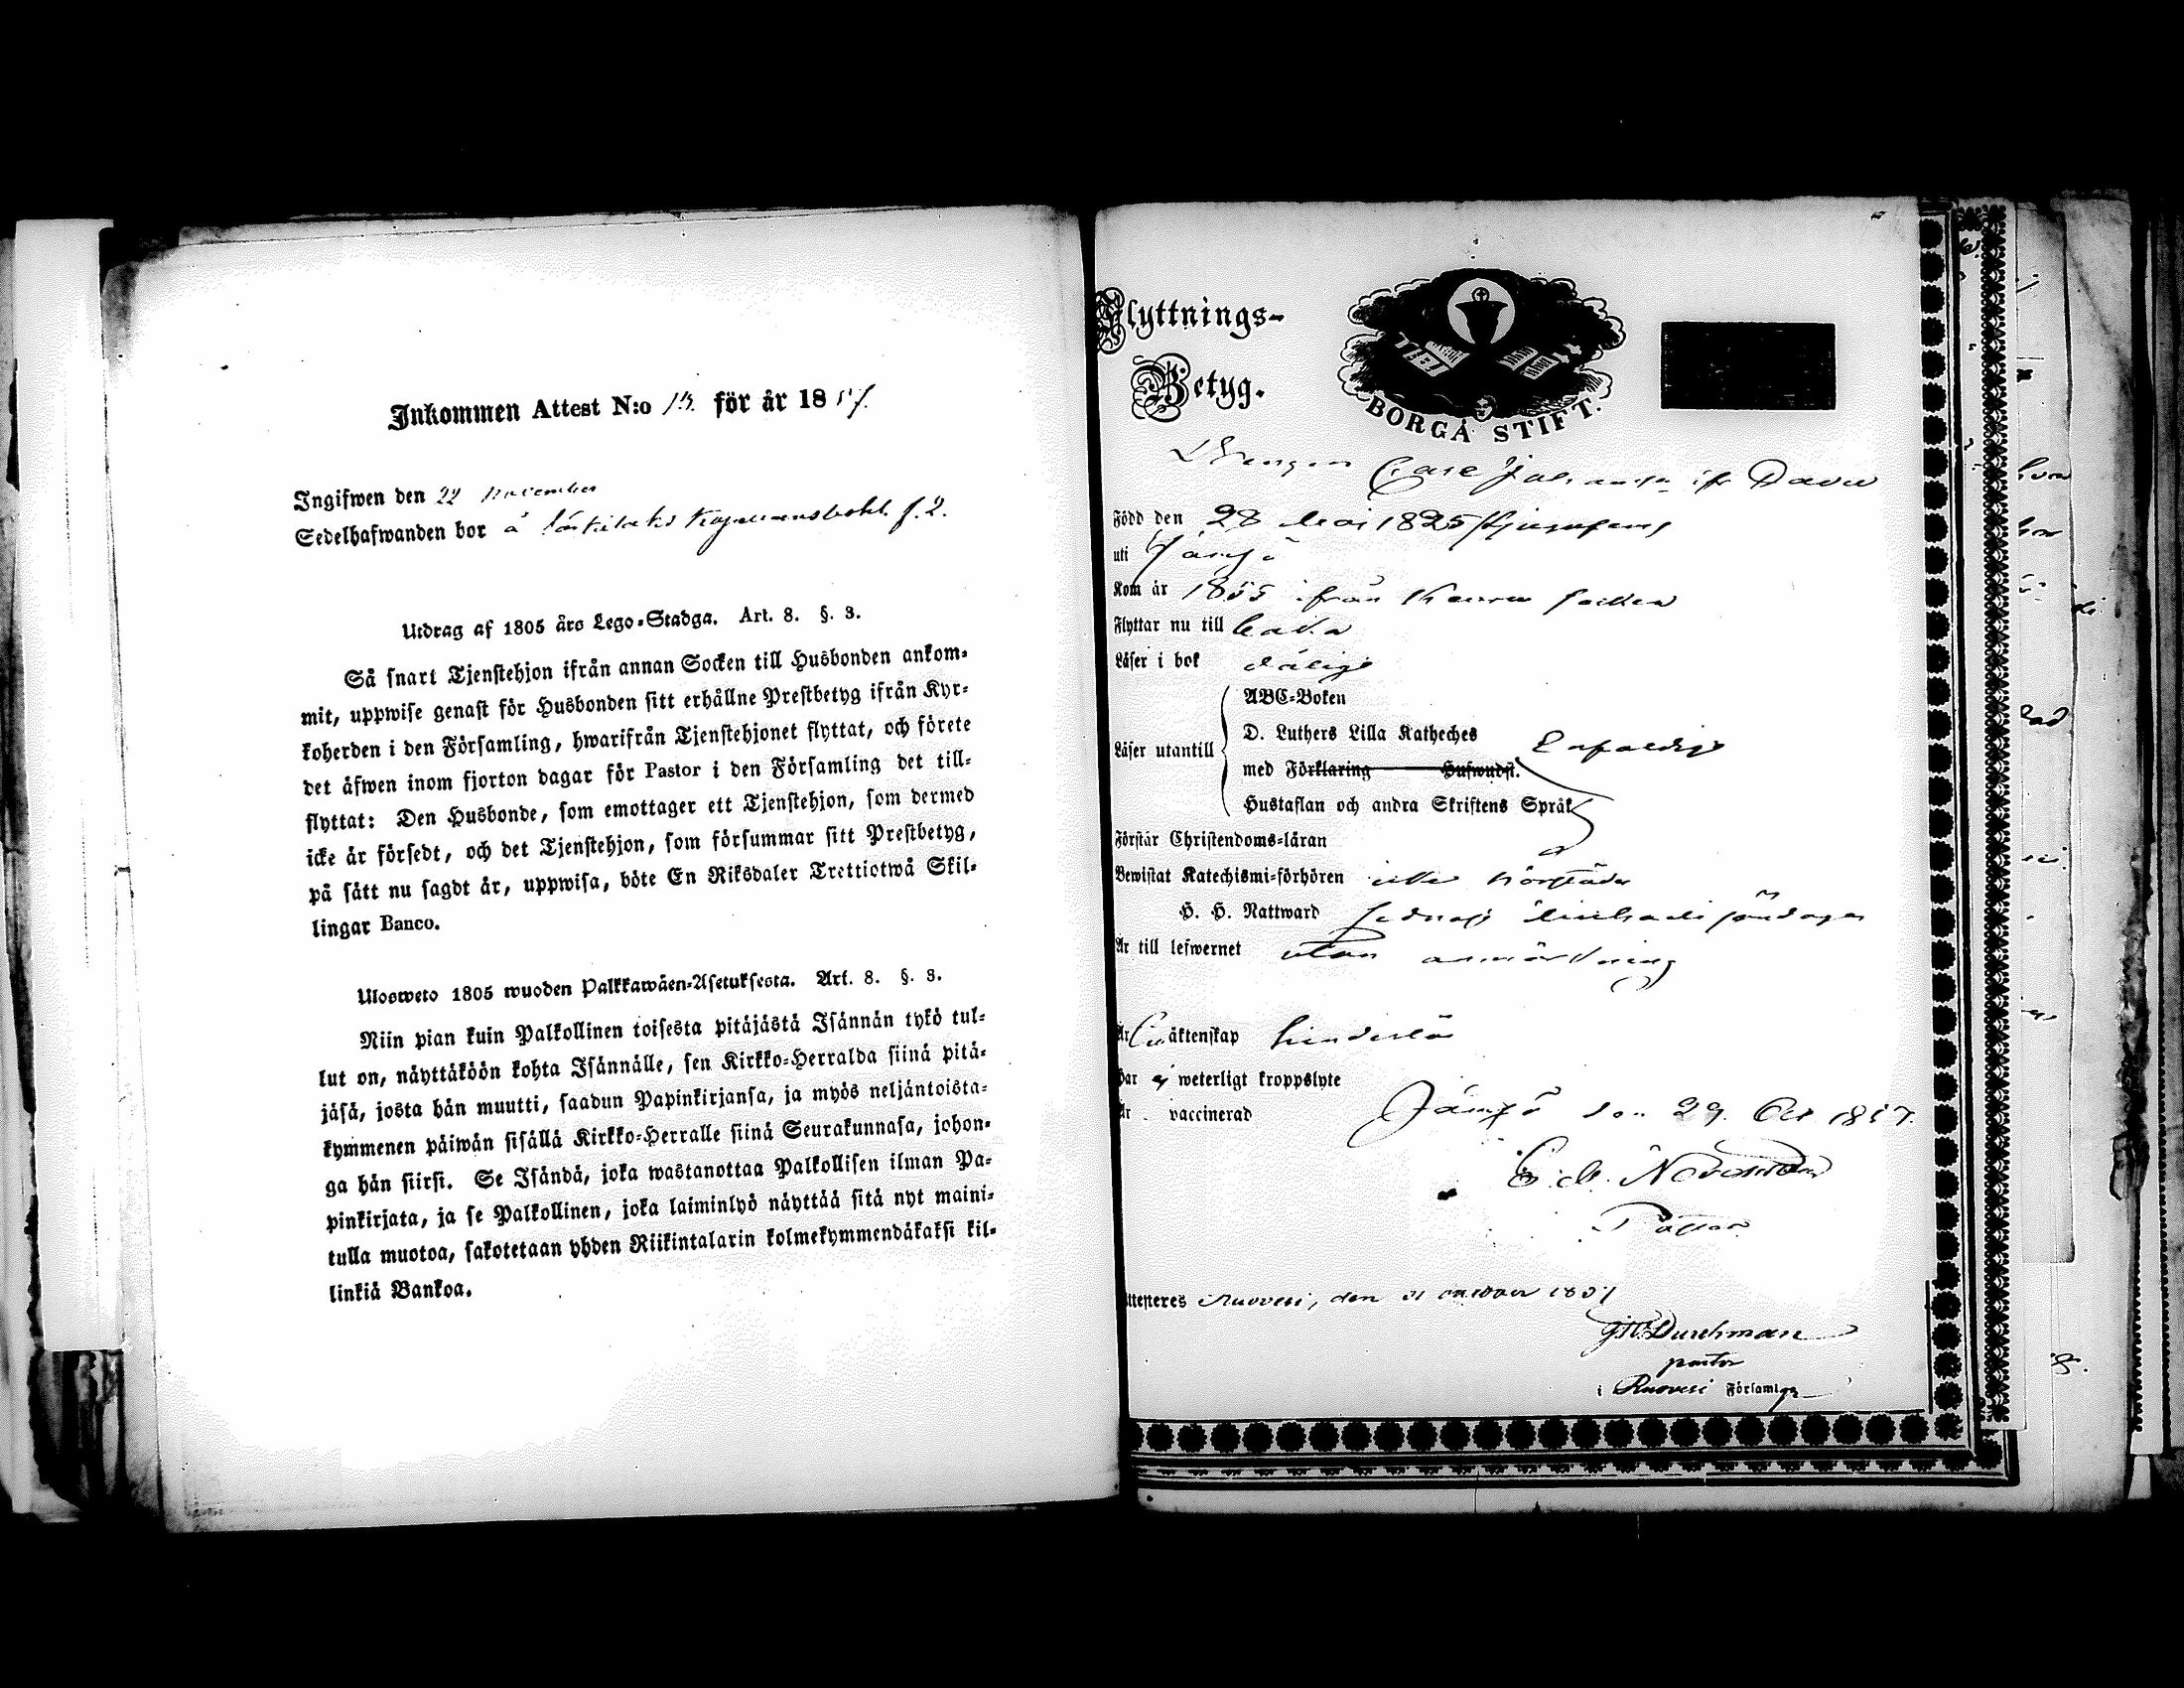 Inkommen Attest N:o 13. för år 1857.
Ingifwen den 22 november
Sedelhafwanden bor å f. 2.
Utdrag af 1805 års Lego-Stadga. Art. 8. §. 3.
Så snart Tjenstehjon ifrån annan Socken till Husbonden ankom-
mit, uppwise genast för Husbonden sitt erhållne Prestbetyg ifrån Kyr-
koherden i den Församling, hwarifrån Tjenstehjonet flyttat, och förete
det äfwen inom fjorton dagar för Pastor i den Församling det till-
flyttat: Den Husbonde, som emottager ett Tjenstehjon, som dermed
icke är försedt, och det Tjenstehjon, som försummar sitt Prestbetyg,
på sätt nu sagdt är, uppwisa, böte En Riksdaler Trettiotwå Skil-
lingar Banco.
Ulosweto 1805 wuoden Palkkawäen-Asetuksesta. Art. 8. §. 3.
Niin pian kuin Palkollinen toisesta pitäjästä Isännän tykö tul-
lut on, näyttäköön kohta Isännälle, sen Kirkko-Herralda siinä pitä-
jäsä, josta hän muutti, saadun Papinkirjansa, ja myös neljäntoista-
kymmenen päiwän sisällä Kirkko-Herralle siinä Seurakunnasa, johon-
ga hän siirsi. Se Isändä, joka wastanottaa Palkollisen ilman Pa-
pinkirjata, ja se Palkollinen, joka laiminlyö näyttää sitä nyt maini-
tulla muotoa, sakotetaan yhden Riikintalarin kolmekymmendäkaksi kil-
linkiä Bankoa.
Flyttnings-
Betyg.
BORGÅ STIFT.
Drengen Carl Johansson
Född den 28 Maj 1825
uti Jämsä
Kom år 1855 ifrån socken
Flyttar nu till
Läser i bok dåligt
Läser utantill
ABC-Boken
D. Luthers Lilla Katheches Enfaldigt
med Förklaring Hufwudst.
Hustaflan och andra Skriftens Språk
Förstår Christendoms-läran
Bewistat Katechismi-förhören icke
H. H. Nattward sednast Michaeli söndagen
Är till lefwernet utan anmärkning
Är äktenskap hinderlös
Har ej weterligt kroppslyte
Är vaccinerad
Jämsä den 29. Oct 1857.
Pastor
Attesteres Ruovesi, den 31 october 1857
Durchman
pastor
i Ruovesi Församling